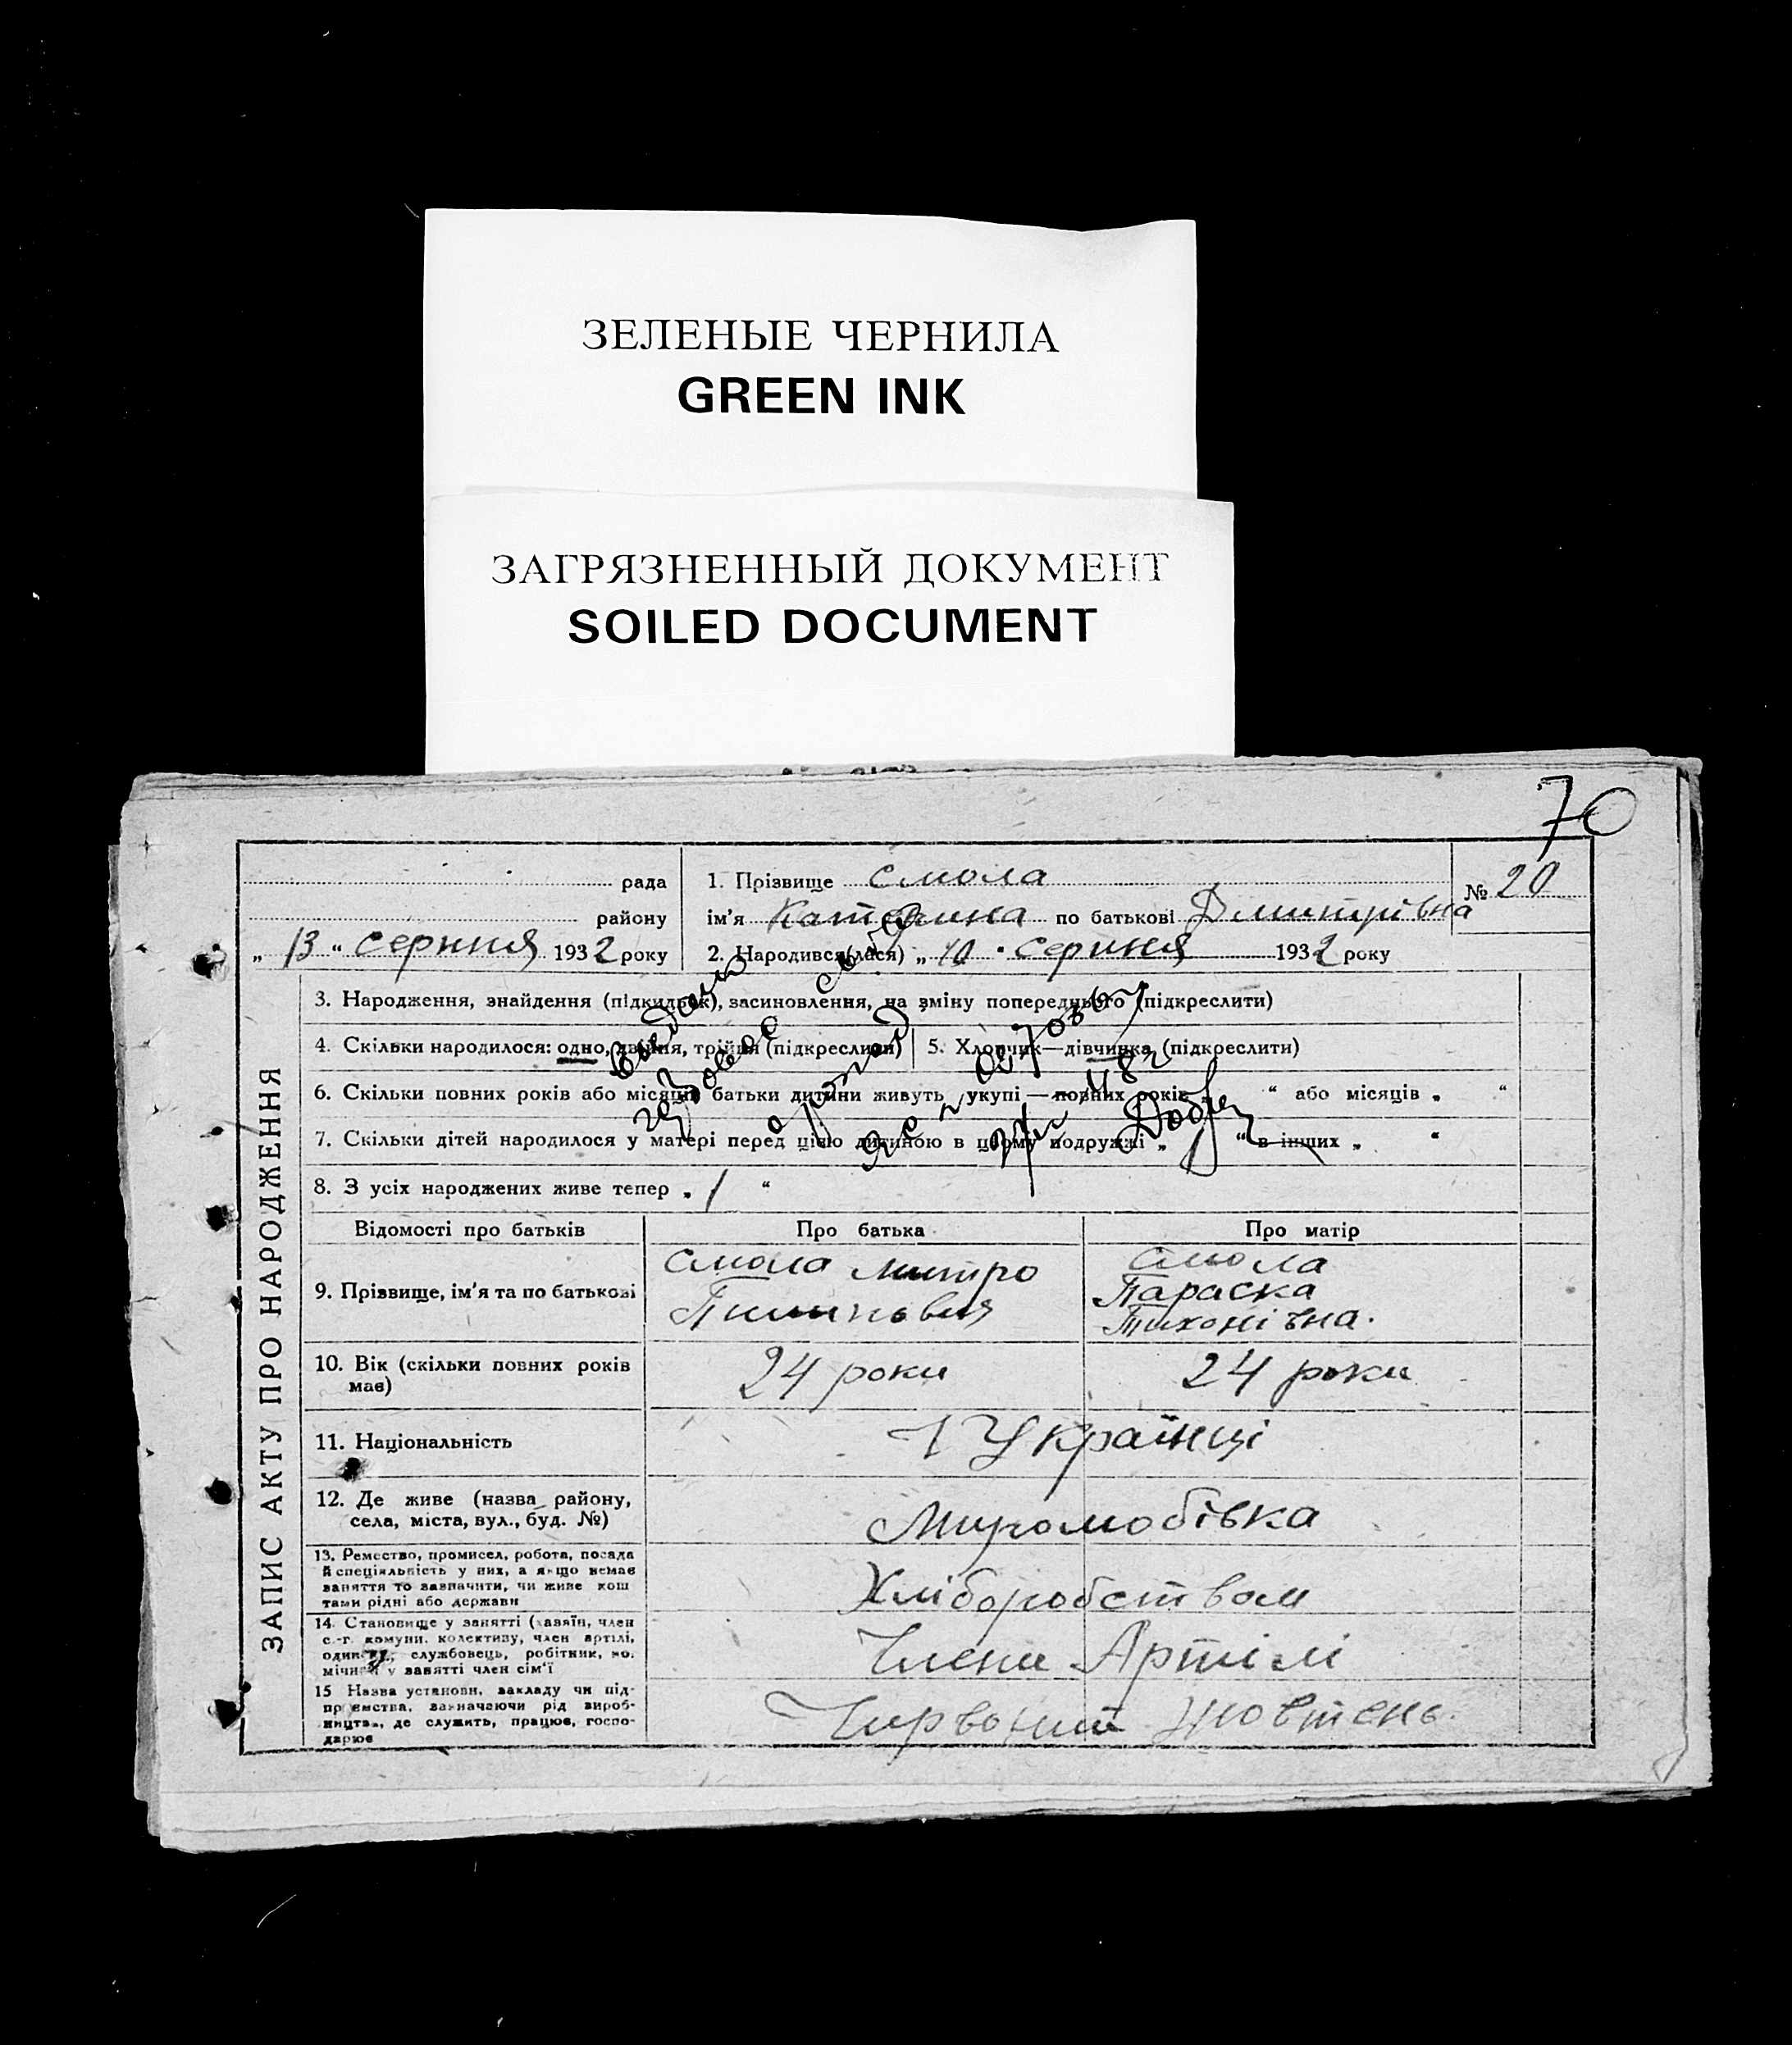 ЗЕЛЕНЫЕ ЧЕРНИЛА
GREEN INK
ЗАГРЯЗНЕННЫЙ ДОКУМЕНТ
SOILED DOCUMENT
70
ЗАПИС АКТУ ПРО НАРОДЖЕННЯ
рада
району
„ 13 “ серпня 1932 року
1. Прізвище Смола
ім'я Катерина по батькові Дмитрівна
№ 20
2. Народився(лася) „ 10 " серпня 1932 року
3. Народження, знайдення (підкидьок), засиновлення, на зміну попереднього (підкреслити)
4. Скільки народилося: одно, двійня, трійця (підкреслити)
5. Хлопчик—дівчинка (підкреслити)
6. Скільки повних років або місяців батьки дитини живуть укупі — повних років “ або місяців „ “
7. Скільки дітей народилося у матері перед цією дитиною в цьому подружжі „ 1 “ в інших „ “
8. З усіх народжених живе тепер „ 1 “
Відомості про батьків
Про батька
Про матір
9. Прізвище, ім'я та по батькові
Смола Митро
Смола
Параска
Тихонівна.
10. Вік (скільки повних років
має)
24 роки
24 роки
11. Національність
Українці
12. Де живе (назва району,
села, міста, вул., буд. №)
13. Ремество, промисел, робота, посада
й спеціяльність у них, а якщо немає
заняття то зазначити, чи живе кош
тами рідні або держави
Хліборобством
14. Становище у занятті (хазяїн, член
с.-г. комуни, колективу, член артілі,
службовець, робітник,
у занятті член сім'ї
Члени Артілі
15 Назва установи, закладу чи під-
приємства, зазначаючи рід вироб-
ництва, де служить, працює, госпо-
дарює
Жовтень.